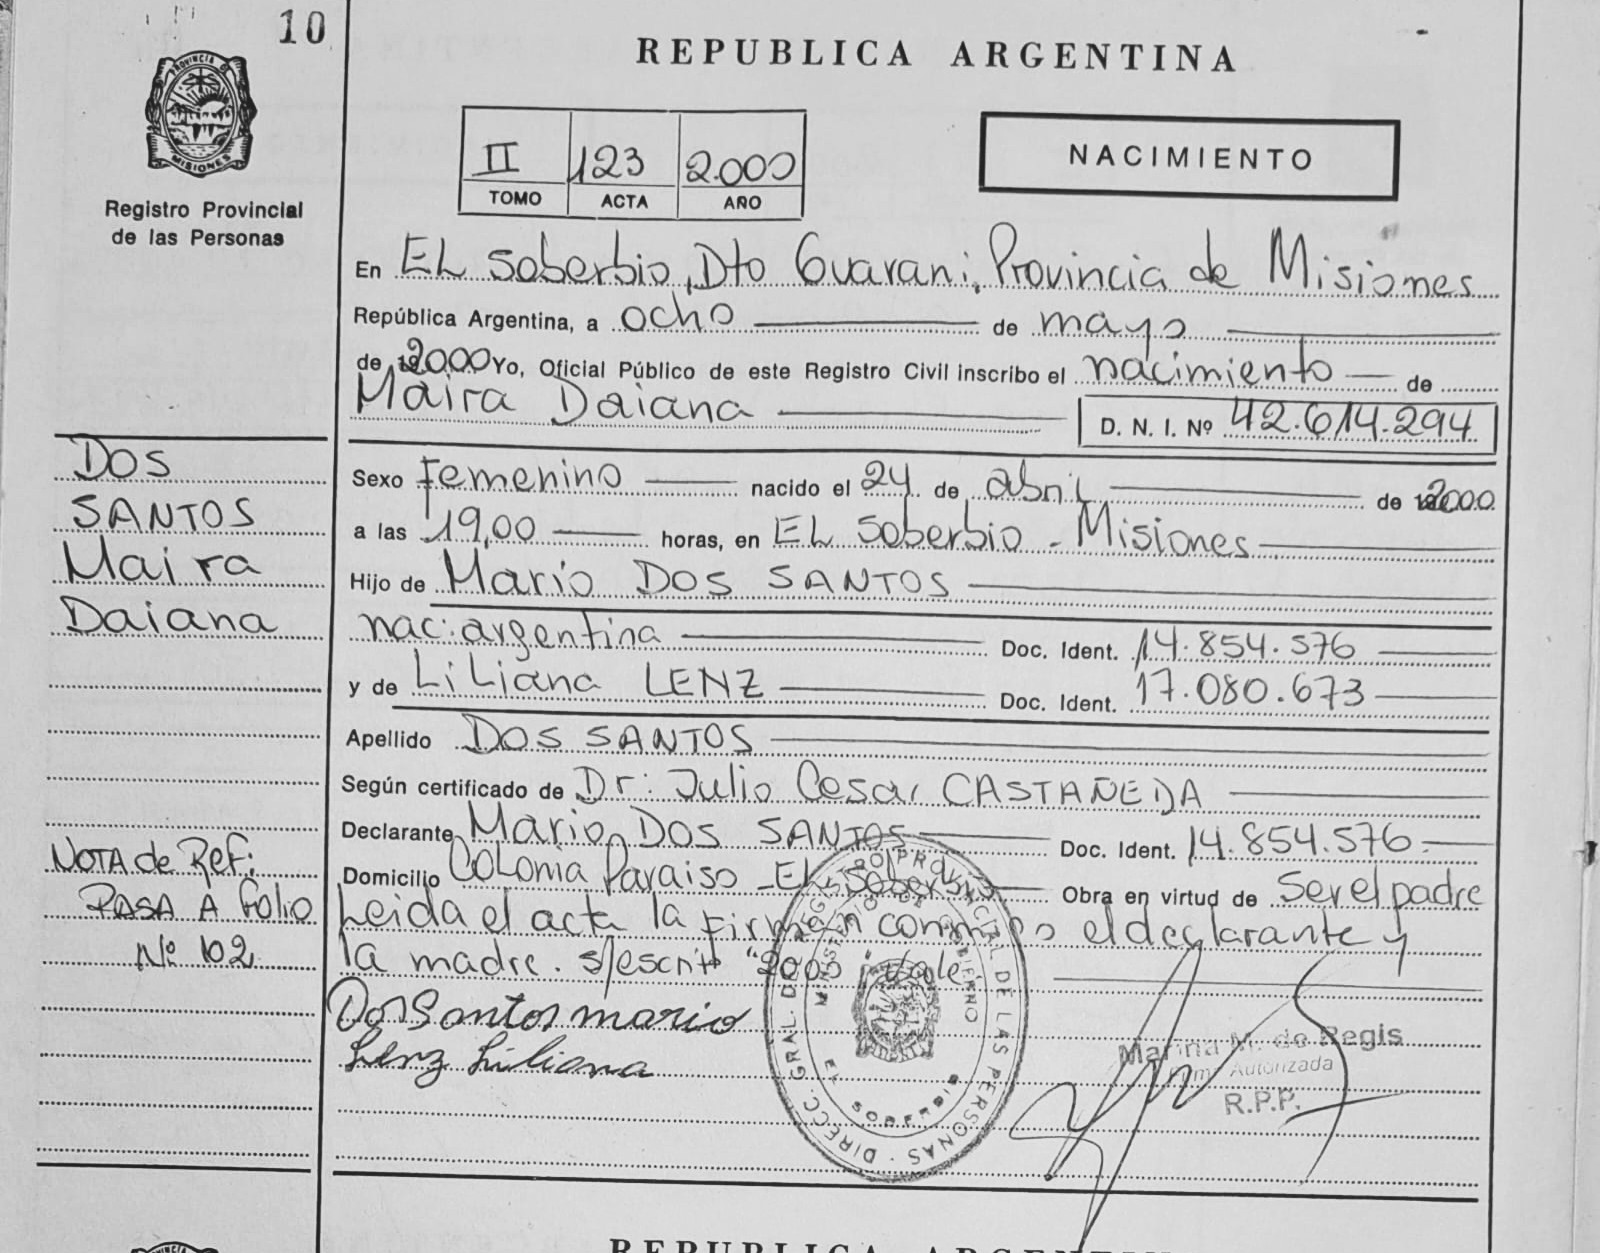 10
PROVINCIA DE
MISIONES
Registro Provincial
de las Personas
REPUBLICA ARGENTINA
II 123 2.000
TOMO ACTA AÑO
NACIMIENTO
En EL Soberbio, Dto Guarani, Provincia de Misiones
República Argentina, a ocho de mayo
de 2000 Yo, Oficial Público de este Registro Civil inscribo el nacimiento de
Maira Daiana D. N. I. Nº 42.614.294
Sexo Femenino nacido el 24 de abril de 2000
a las 19,00 horas, en EL Soberbio - Misiones
Hijo de Mario DOS SANTOS
nac: argentina Doc. Ident. 14.854.576
y de Liliana LENZ Doc. Ident. 17.080.673
Apellido DOS SANTOS
Según certificado de Dr: Julio Cesar CASTAÑEDA
Declarante Mario DOS SANTOS Doc. Ident. 14.854.576
Domicilio Colonia Paraiso - El Soberbio Obra en virtud de Ser el padre
Leida el acta la Firman conmigo el declarante y
la madre. s/escrito "2000" Vale
Dos Santos mario
Lenz Liliana
DOS
SANTOS
Maira
Daiana
NOTA de Ref:
PASA A Folio
Nº 102
DIRECC. GRAL. DE REGISTRO PROVINCIAL DE LAS PERSONAS
MINISTERIO DE GOBIERNO
EL SOBERBIO
Marina M. de Regis
Firma Autorizada
R.P.P.
PROVINCIA
REPUBLICA ARGENTINA